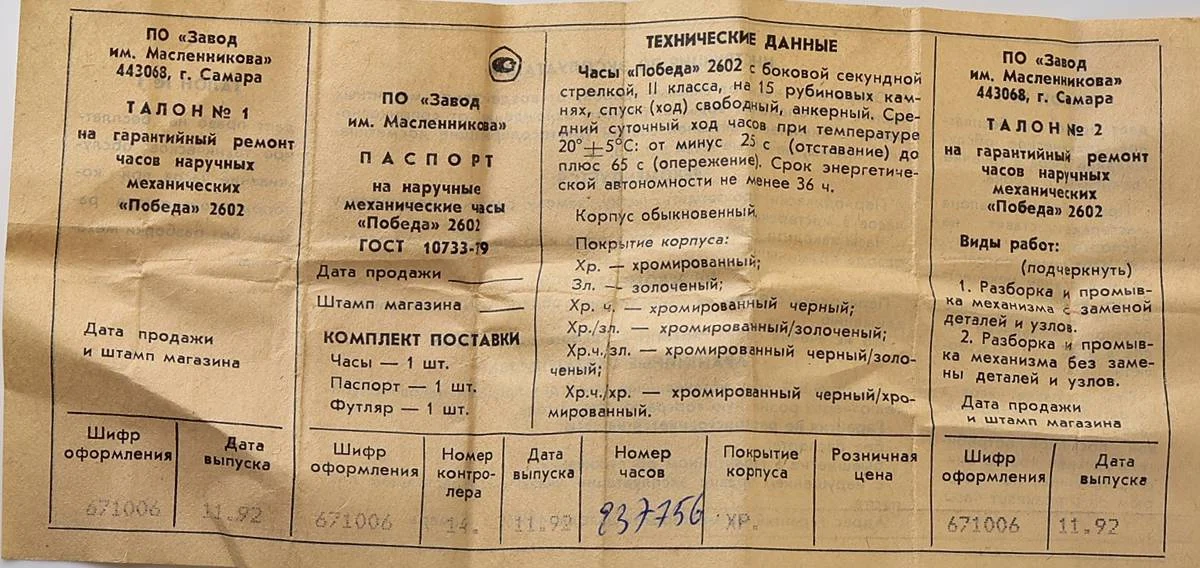 ПО «Завод
им. Масленникова»
443068, г. Самара
ТАЛОН № 1
на гарантийный ремонт
часов наручных
механических
«Победа» 2602
Дата продажи
и штамп магазина
Шифр
оформления
Дата
выпуска
671006
11.92
ПО «Завод
им. Масленникова»
ПАСПОРТ
на наручные
механические часы
«Победа» 2602
ГОСТ 10733-79
Дата продажи
Штамп магазина
КОМПЛЕКТ ПОСТАВКИ
Часы — 1 шт.
Паспорт — 1 шт.
Футляр — 1 шт.
ТЕХНИЧЕСКИЕ ДАННЫЕ
Часы «Победа» 2602 с боковой секундной
стрелкой, II класса, на 15 рубиновых кам-
нях, спуск (ход) свободный, анкерный. Сре-
дний суточный ход часов при температуре
20°±5°С: от минус 25 с (отставание) до
плюс 65 с (опережение). Срок энергетиче-
ской автономности не менее 36 ч.
Корпус обыкновенный.
Покрытие корпуса:
Хр. — хромированный;
Зл. — золоченый;
Хр. ч. — хромированный черный;
Хр./зл. — хромированный/золоченый;
Хр.ч./зл. — хромированный черный/золо-
ченый;
Хр.ч./хр. — хромированный черный/хро-
мированный.
Шифр
оформления
Номер
контро-
лера
Дата
выпуска
Номер
часов
Покрытие
корпуса
Розничная
цена
671006
14.
11.92
937756
ХР.
ПО «Завод
им. Масленникова»
443068, г. Самара
ТАЛОН № 2
на гарантийный ремонт
часов наручных
механических
«Победа» 2602
Виды работ:
(подчеркнуть)
1. Разборка и промыв-
ка механизма с заменой
деталей и узлов.
2. Разборка и промыв-
ка механизма без заме-
ны деталей и узлов.
Дата продажи
и штамп магазина
Шифр
оформления
Дата
выпуска
671006
11.92